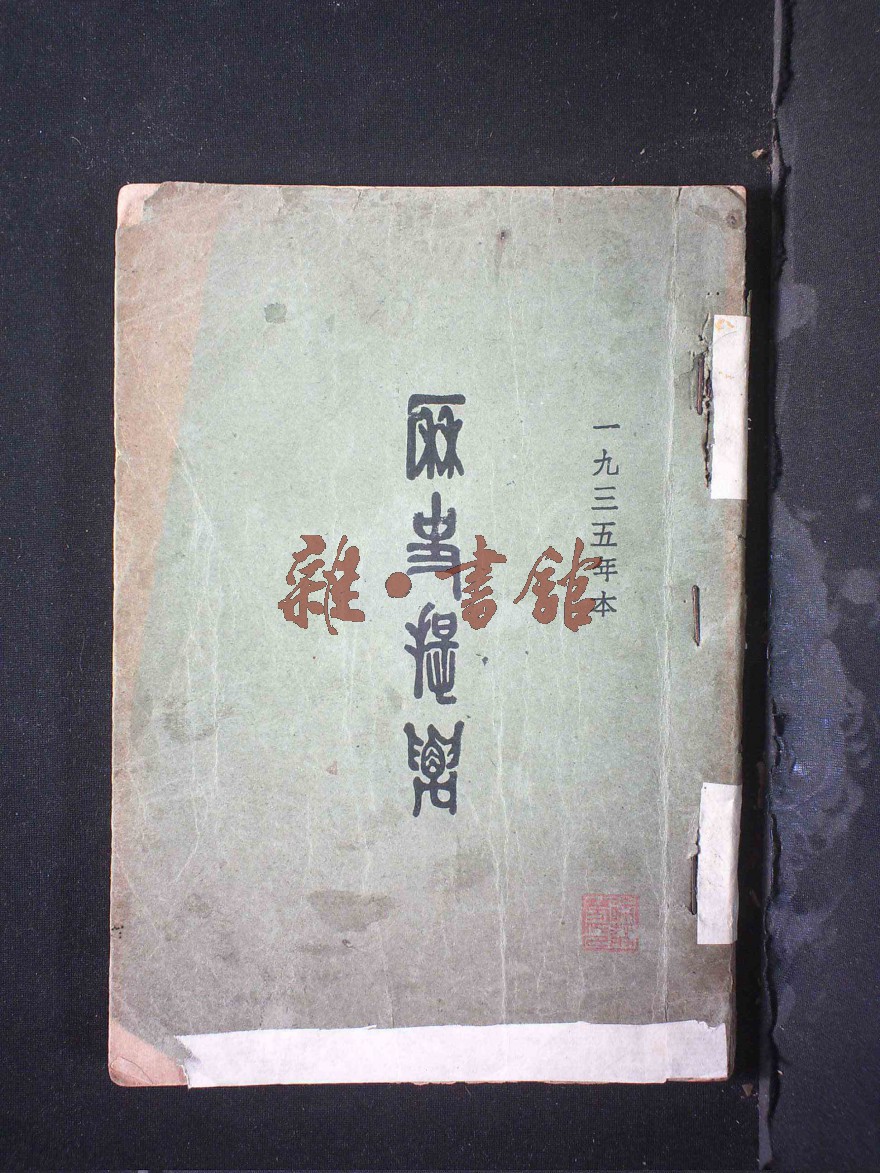 一九三五年本
史提要
雜·書館